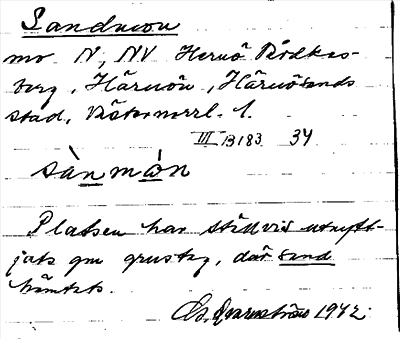 Sandmon
mo N, NV Hernö Rödkes-
berg, Härnön, Härnösands
stad, Västernorrl. l.
III B183 34
sànmón
Platsen har ställvis utnytt-
jats gm grustag, där sand
hämtats.
Qvarnström 1942.